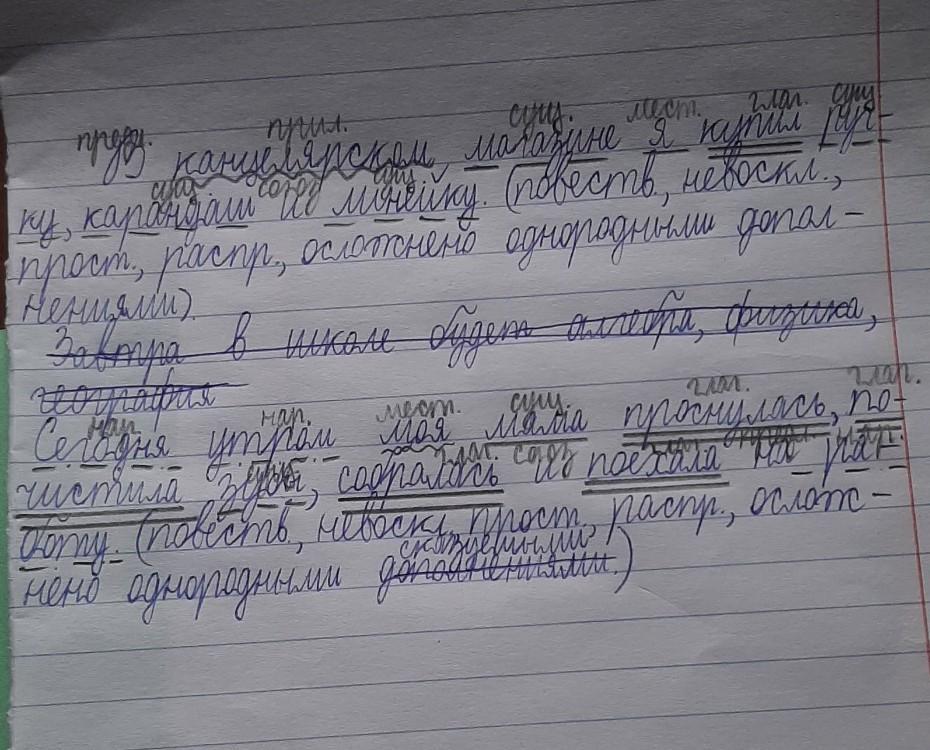 предл. прил. сущ. мест. глаг. сущ.
В канцелярском магазине я купил руч-
сущ. союз сущ.
ку, карандаш и линейку. (повеств, невоскл.,
прост., распр., осложнено однородными допол-
нениями).
Завтра в школе будет алгебра, физика,
география
нар. нар. мест. сущ. глаг. глаг.
Сегодня утром моя мама проснулась, по-
сущ. глаг. союз глаг. предл. сущ.
чистила зубы, собралась и поехала на ра-
боту. (повеств, невоскл, прост, распр., ослож-
сказуемыми
нено однородными дополнениями.)